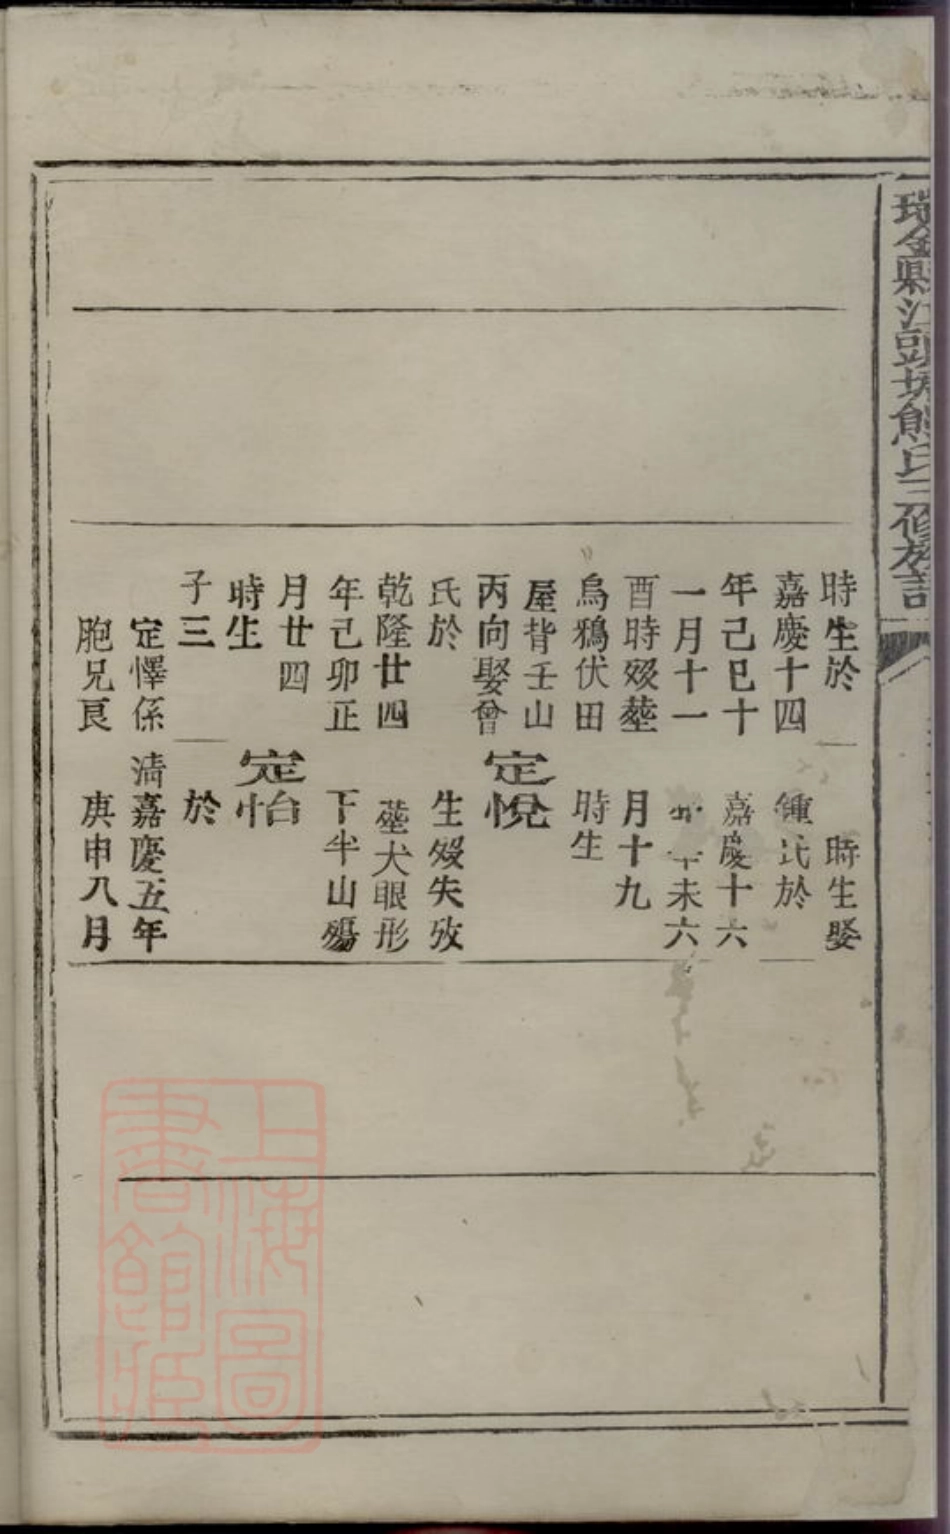 瑞金縣江頭熊氏三修族譜
時生於
嘉慶十四
年己巳十
一月十一
酉時歿塟
烏鴉伏田
屋背壬山
丙向娶曾
氏於
乾隆廿四
年己卯正
月廿四
時生
子三
定懌係
胞兄良
時生娶
鍾氏於
嘉慶十六
年辛未六
月十九
時生
定悅
生歿失攷
塟犬眼形
下半山殤
定怡
於
清嘉慶五年
庚申八月
上海圖
書館藏